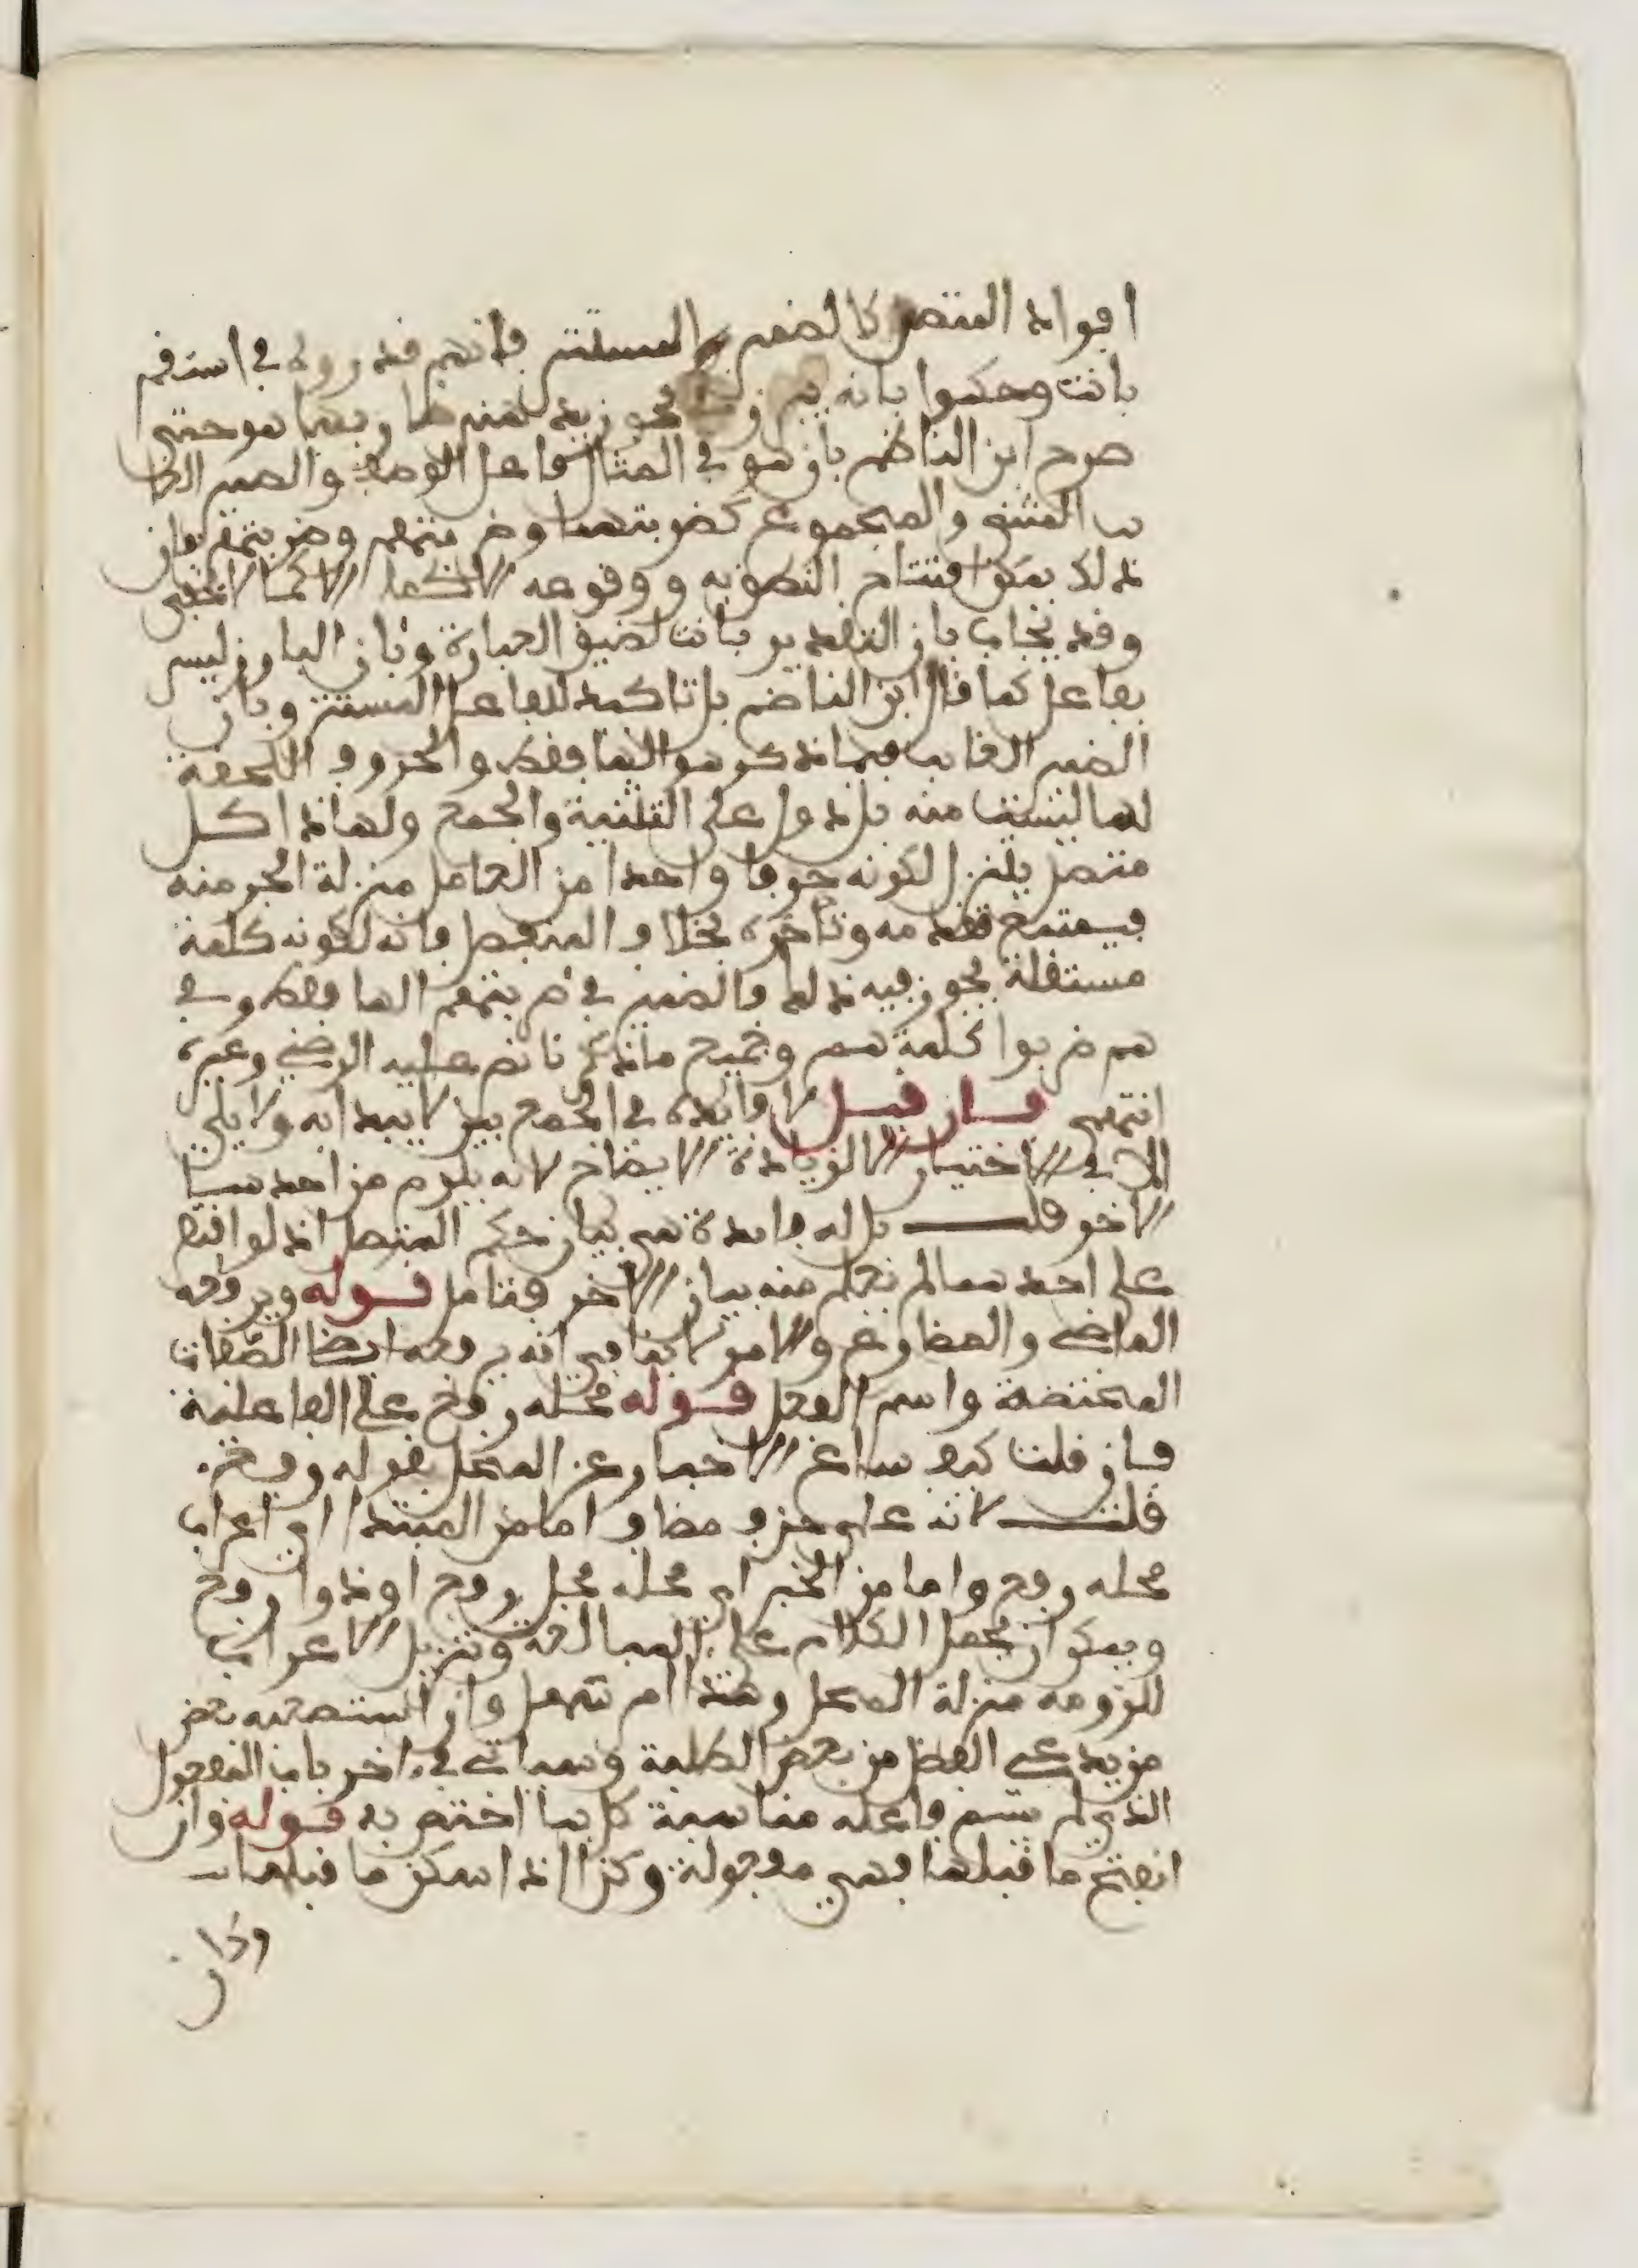 افراد المتصل كالضمير المستتر فانهم قدروه في استقم
بانت وحكموا بانه يبرز في نحو زيد هند ضاربها هو حتى
صرح ابن الناظم بان هو في المثال فاعل الوصف والضمير الغا
ب المثنى والمجموع كضربتهما وضربتهم وضربتهن فان
ذلك يمكن افتتاح النطق به ووقوعه الا كما لا يخفى
وقد يجاب بان التقدير بانت لضيق العبارة وبان البارز ليس
بفاعل كما قال ابن الناظم بل تاكيد للفاعل المستتر وبان
الضمير الغايب فيما ذكر هو الها فقط والحروف اللاحقة
لها ليست منه بل دوال على التثنية والجمع ولهاذا كل
متصل ينزل لكونه حرفا واحدا من العامل منزلة الجزء منه
فيمتنع تقدمه وتاخره بخلاف المنفصل فانه لكونه كلمة
مستقلة يجوز فيه ذلك فالضمير في ضربتهم الها فقط وفي
هم ضربوا كلمة هم وجميع ما ذكرنا نص عليه الرضي وغيره
انتهى فان قيل لا فايدة في الجمع بين لا يبتدا به ولا يلي
الا في الاختيار الا لزيادة الايضاح لانه يلزم من احدهما
الاخر قلت بل له فايدة هي بيان حكم المتصل اذ لو اقتصر
على احدهما لم يعلم منه بيان الاخر فتامل قوله ويرفعه
الماضي والمضارع والامر لا ينافي انه يرفعه ايضا الصفات
المختصة واسم الفعل قوله محله رفع على الفاعلية
فان قلت كيف ساغ الاخبار عن المحل بقوله رفع
قلت لانه على حذف مضاف اما من المبتدا اي اعراب
محله رفع واما من الخبر اي محله محل رفع او ذو رفع
ويمكن ان يجعل الكلام على المبالغة وتنزيل الاعراب
للزومه منزلة المحل وهذا امر سهل وان استصعبه بعض
من يدعي الفضل من بعض الطلبة وسياتي في اخر باب المفعول
الذي لم يسم فاعله مناسبة كل بما اختص به قوله وان
انفتح ما قبلها فهي مفعولة وكذا اذا سكن ما قبلها
وكان